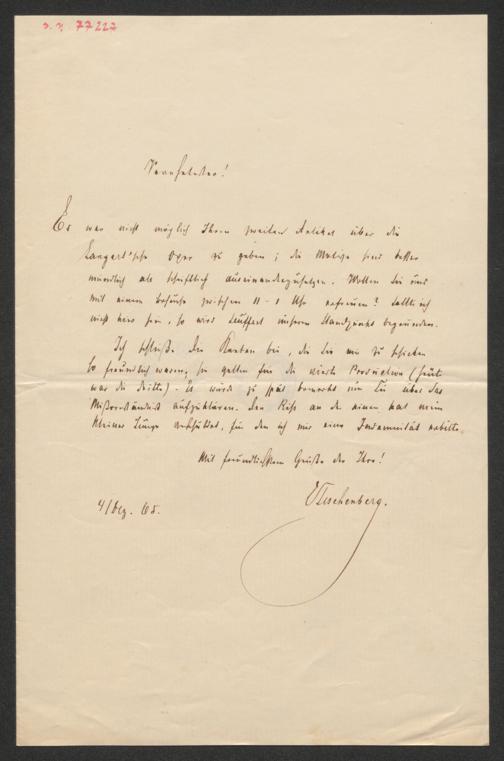 77227
Verehrtester!
Es war nicht möglich Ihren zweiten Artikel über die
Langert'sche Oper zu geben; die Motive sind besser
mündlich als schriftlich auseinanderzusetzen. Wollen Sie uns
mit einem Besuche zwischen 11 - 1 Uhr erfreuen? Sollte ich
nicht hier sein, so wird Leuffert unseren Standpunkt begründen.
Ich schließe die Karten bei, die Sie mir zu schicken
so freundlich waren; sie gelten für die vierte Production (heute
war die dritte) - Es würde zu spät bemerkt um Sie über das
Mißverständniß aufzuklären. Den Riß an der einen hat mein
kleiner Junge verschuldet, für den ich mir eine Indemnität erbitte.
Mit freundlichstem Gruße der Ihre!
Teschenberg.
4/Dez. 65.